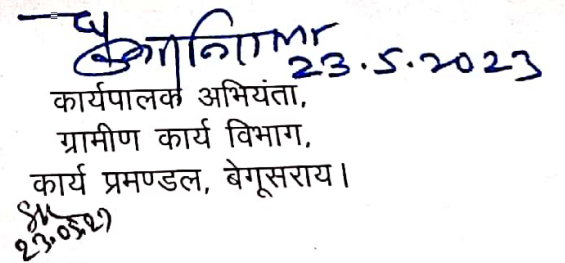 23.5.2023
कार्यपालक अभियंता,
ग्रामीण कार्य विभाग,
कार्य प्रमण्डल, बेगूसराय।
23.05.23